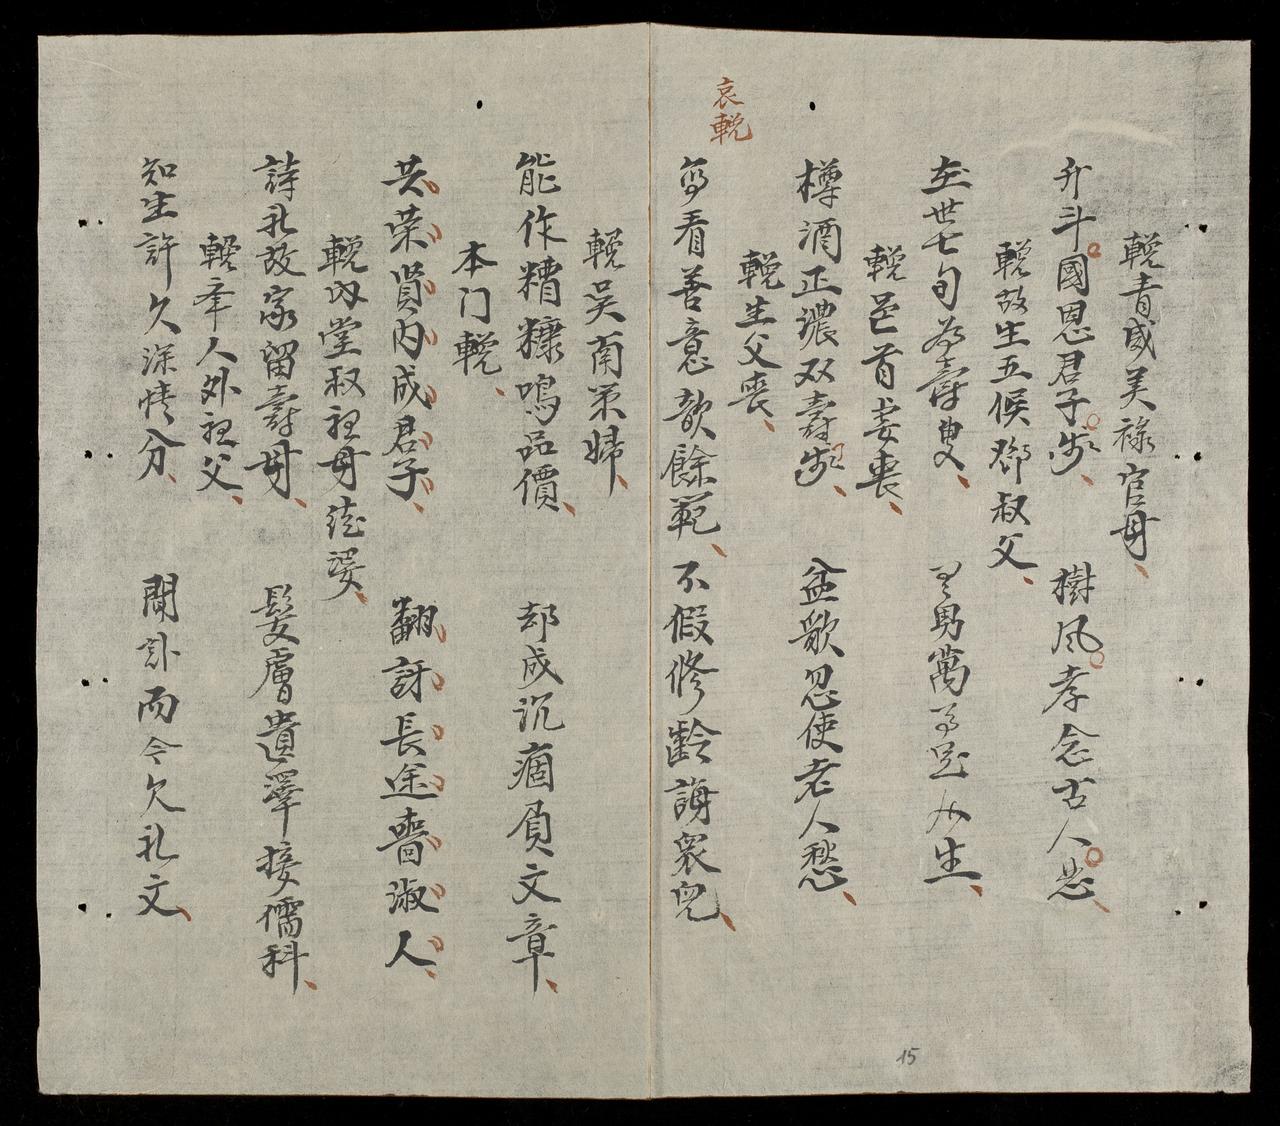 哀輓
輓青威美祿官母
升斗國恩君子步 樹風孝念古人悲
輓故生五候鄧叔父
在世七旬為壽叟 男萬足生
輓邑首妾喪
樽酒正濃双壽步 盆歌忽使老人愁
輓生父喪
看善意歆餘範 不假修齡誨衆兒
輓吳甫策婦
能作糟糠鳴品價 却成沉痼負文章
本门輓
共荣賢内成君子 翻訝長途喪淑人
輓内堂叔祖母
詩礼故家留壽母 髮膚遺澤接儒科
輓举人外祖父
知生許久深情分 聞訃而今欠礼文
15